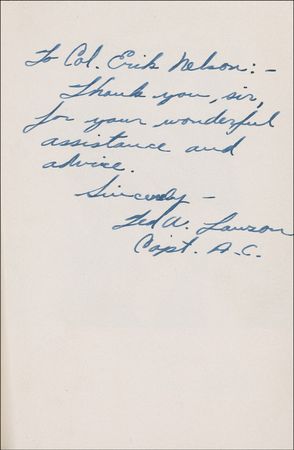 To Col. Erik Nelson:-
Thank you, sir,
for your wonderful
assistance and
advice.
Sincerely -
Ted W. Lawson
Capt. A.C.